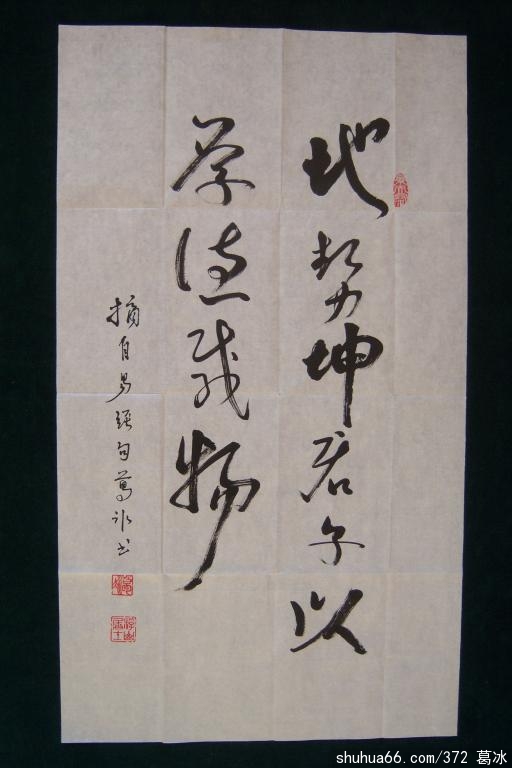 地势坤君子以
厚德载物
摘自易经句葛冰书
shuhua66.com/372 葛冰